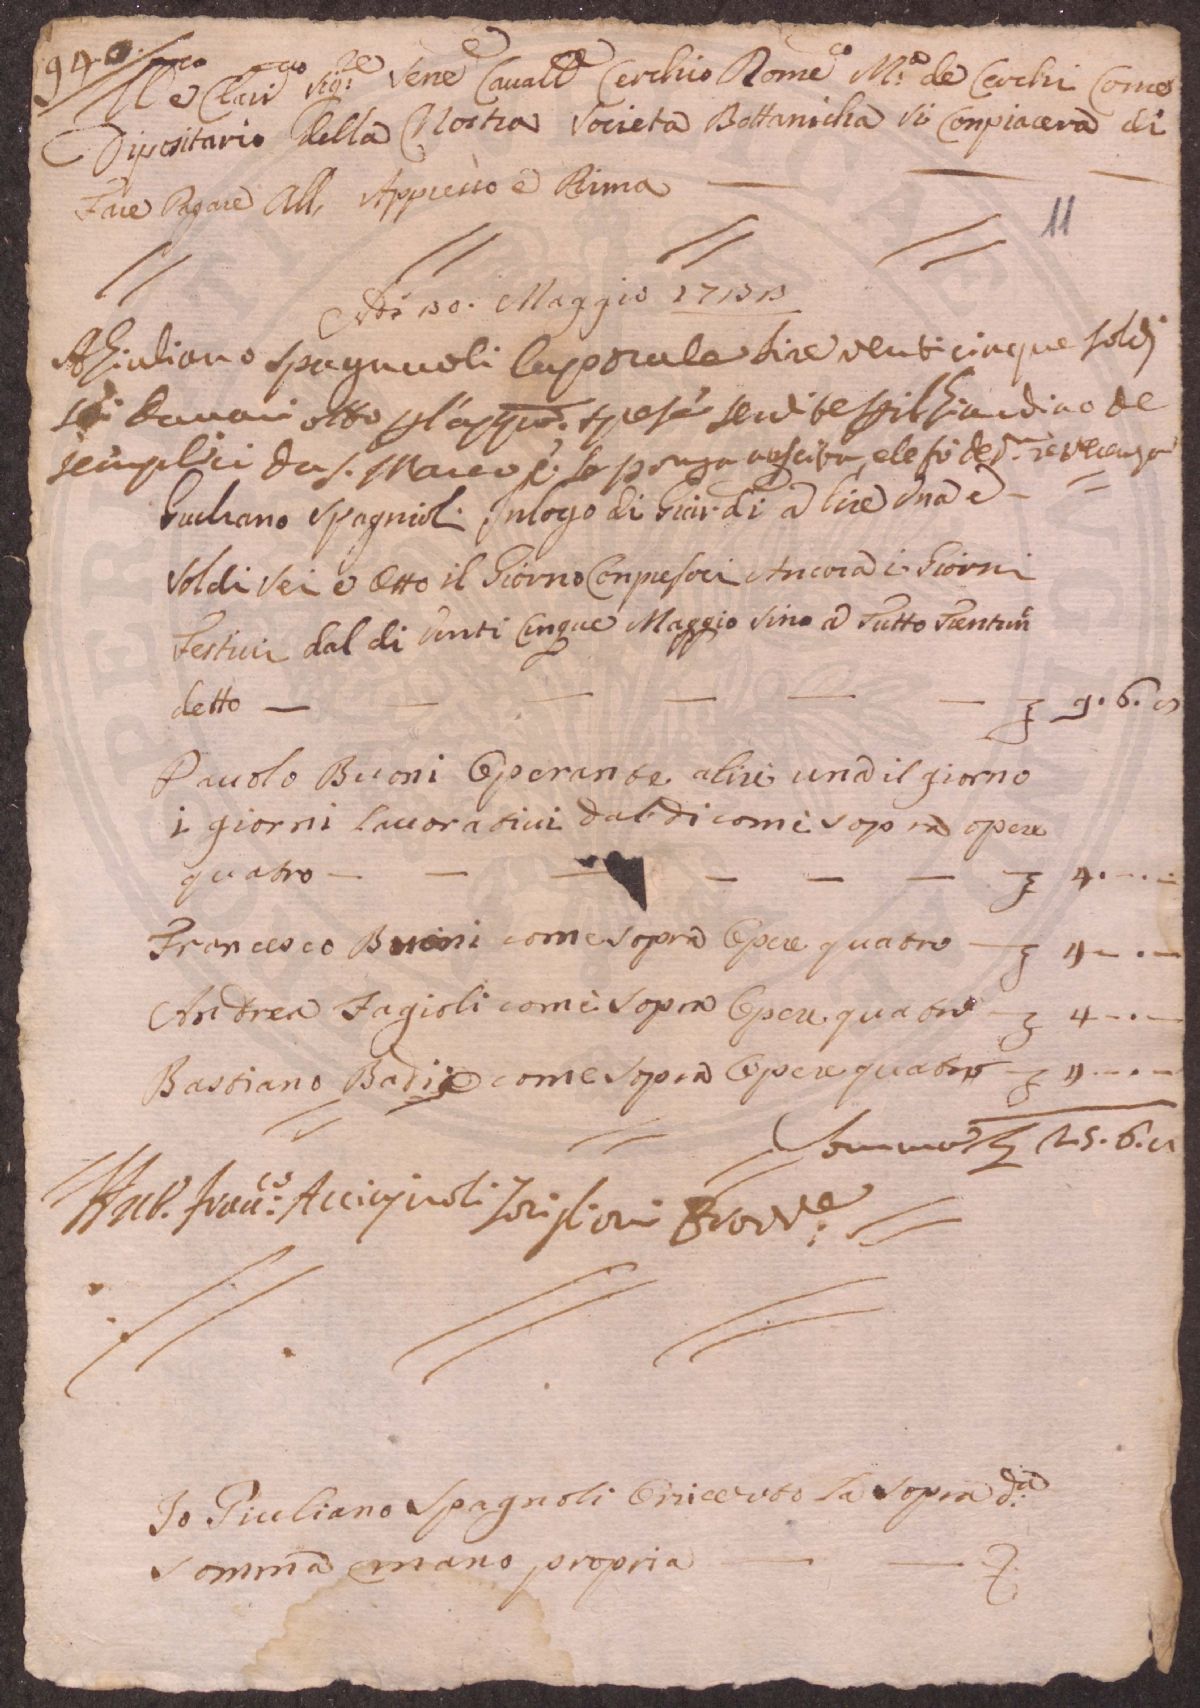 940
Ill e Clari Sig.re Vene Cavall.e Cerchio Rome.co M.a de Cerchi Come
Dipositario della Nostra Societa Bottanicha si Conpiacera di
Fare Pagare all, Appresso e Prima
11
Adi 30. Maggio 1733
A Giuliano Spagnuoli Caporale lire venti cinque soldi
sei danari otto spese Giardino de
semplici da S. Marco
Giuliano Spagnioli in logo di Giardi a lire una e
soldi sei e Otto il Giorno Conpresoci Ancora i Giorni
Festivi dal di Venti Cinque Maggio sino a Tutto Trentun
detto — 9. 6. 8
Pauolo Buoni Operante a lire una il giorno
i giorni lauoratiui dal di come sopra opere
quatro — 4. —
Francesco Buoni come sopra Opere quatro — 4 — . —
Andrea Fagioli come sopra Opere quatro — 4 — . —
Bastiano Badii come sopra Opere quatro — 4 — . —
Somma 25. 6. 8
Franc.co Acciaiuoli Provv.e
Io Giuliano Spagnoli O riceuto la sopra d.a
somma mano propria